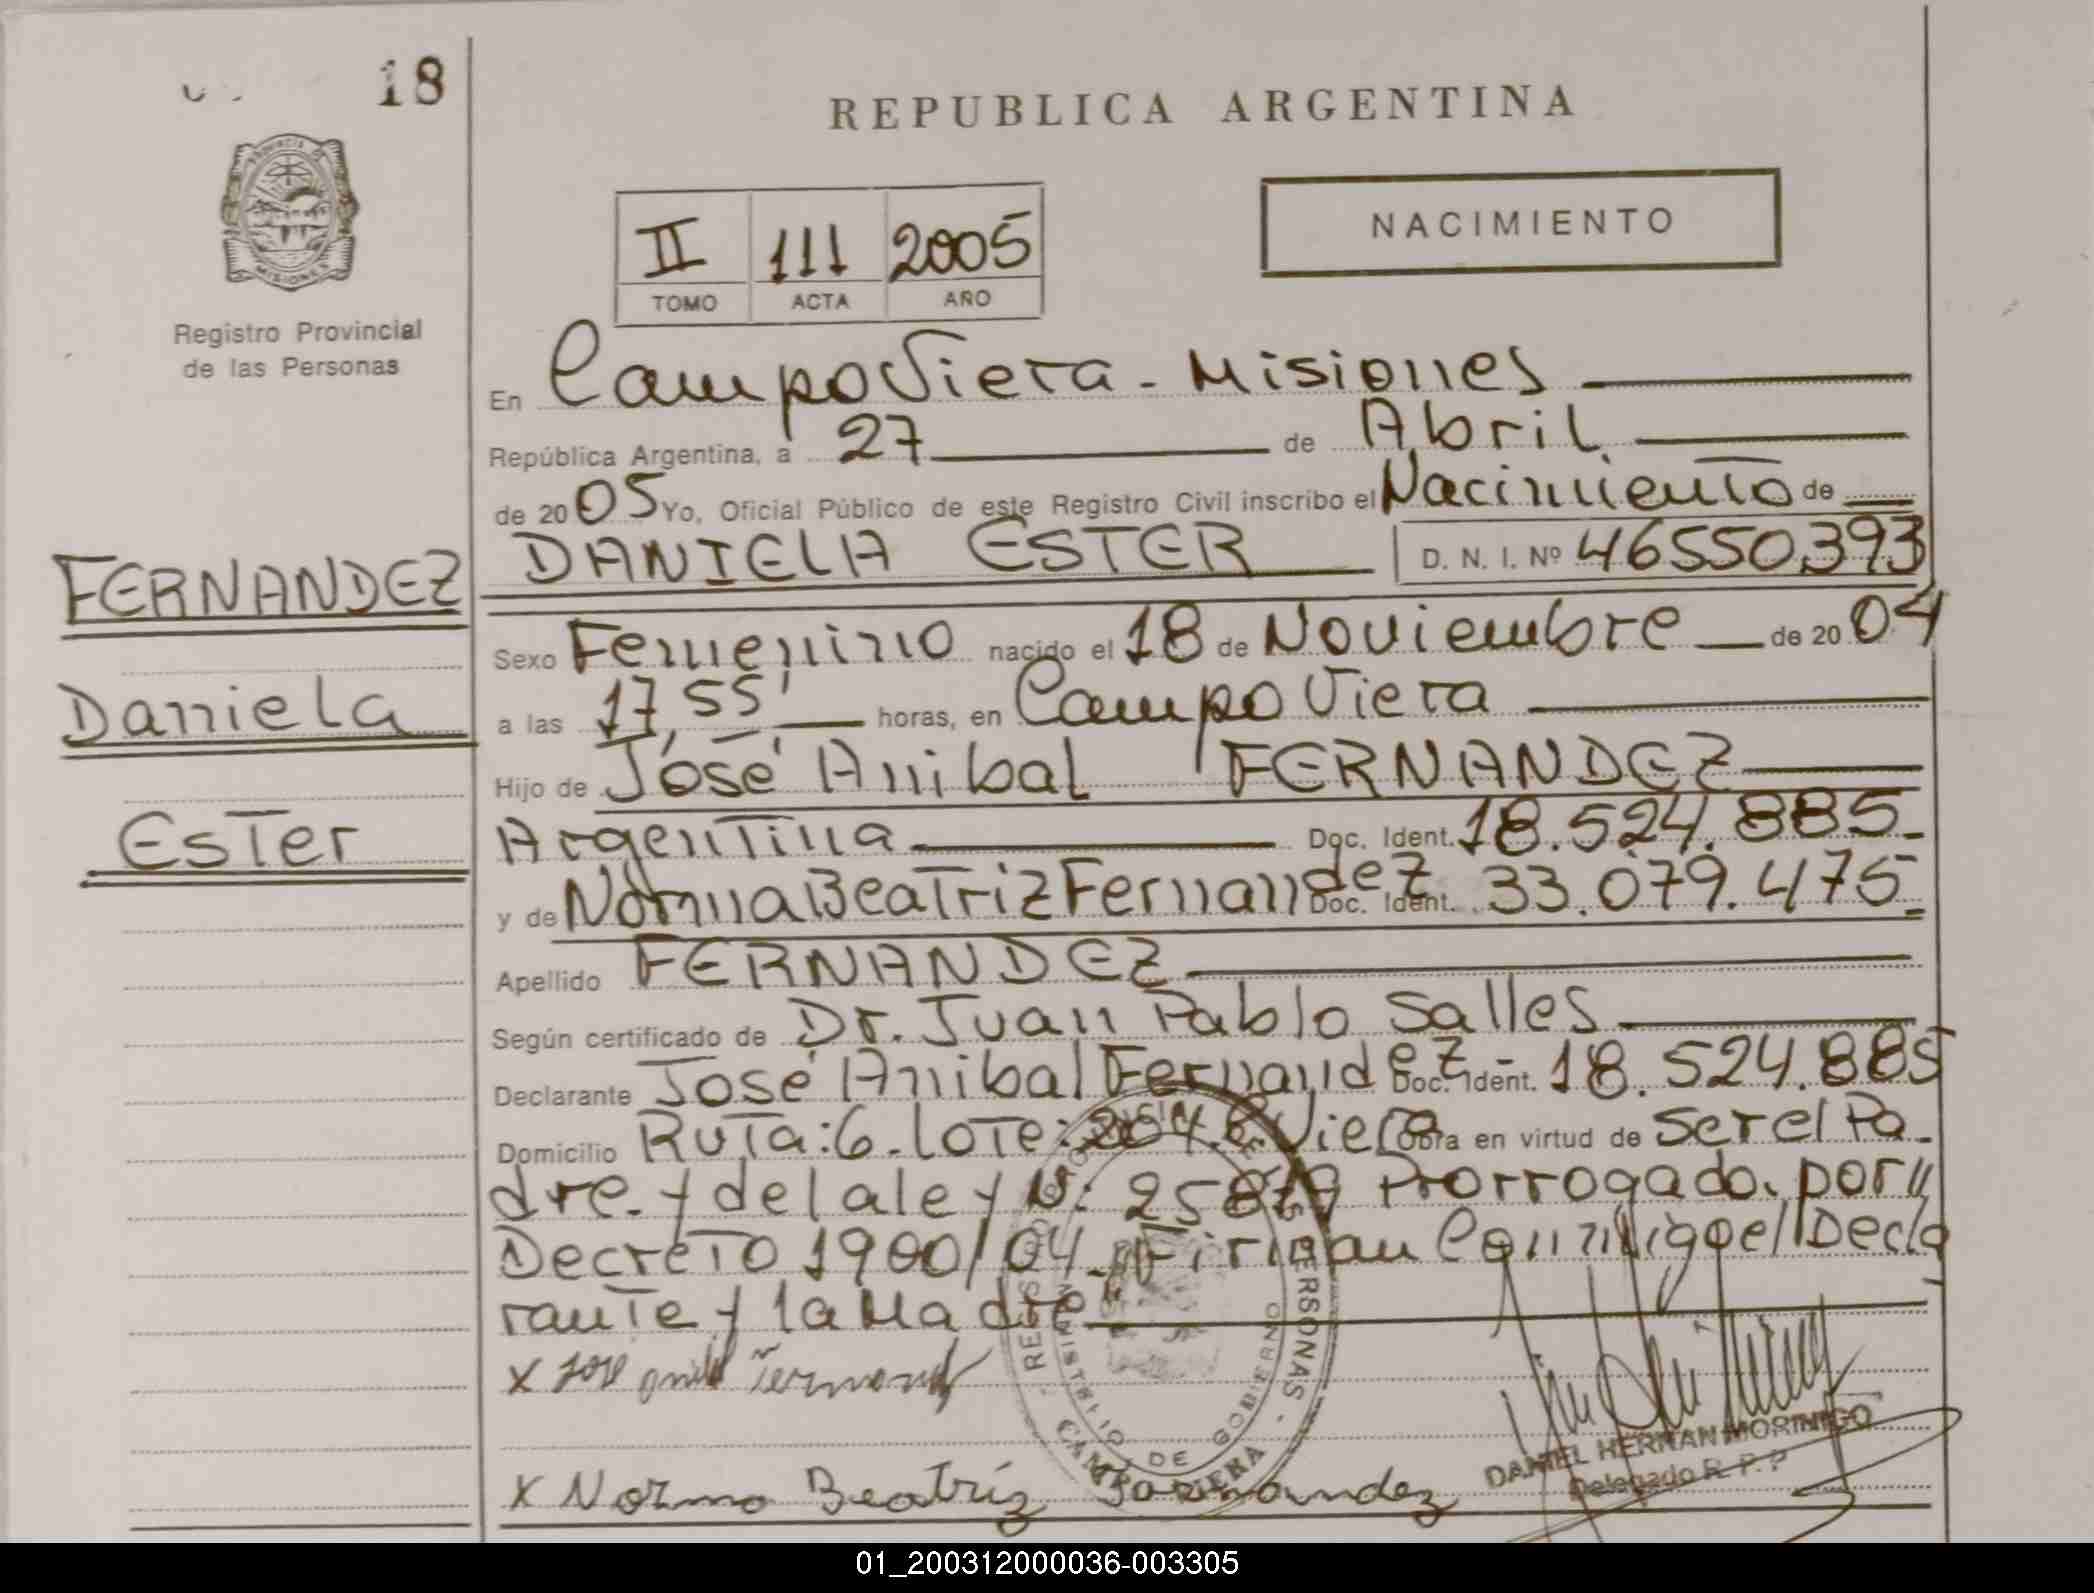 18
REPUBLICA ARGENTINA
NACIMIENTO
II 111 2005
TOMO ACTA AÑO
PROVINCIA DE
MISIONES
Registro Provincial
de las Personas
En Campo Viera - Misiones
República Argentina, a 27 de Abril
de 2005 Yo, Oficial Público de este Registro Civil inscribo el Nacimiento de
DANIELA ESTER D. N. I. Nº 46550393
FERNANDEZ
Daniela
Ester
Sexo Femenino nacido el 18 de Noviembre de 2004
a las 17,55' horas, en Campo Viera
Hijo de José Anibal FERNANDEZ
Argentina Doc. Ident. 18.524.885
y de Norma Beatriz Fernandez Doc. Ident. 33.079.475
Apellido FERNANDEZ
Según certificado de Dr. Juan Pablo Salles
Declarante José Anibal Fernandez - Doc. Ident. 18.524.885
Domicilio Ruta: 6. Lote: Viera Obra en virtud de ser el Pa-
dre y de la ley N: Prorrogado por
Decreto 1900/04. Firman Conmigo el Decla
rante y la Madre
x José Fernandez
x Norma Beatriz Fernandez
REGISTRO DE LAS PERSONAS
MINISTERIO DE GOBIERNO
CAMPO VIERA
DANIEL HERNAN MORINIGO
Delegado R. P. P
01_200312000036-003305